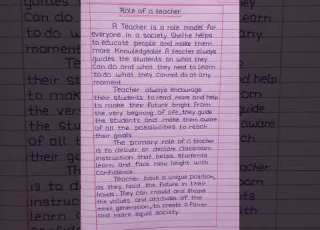 Role of a teacher
A Teacher is a role model for
everyone in a society. She/he helps
to educate people and make them
more knowledgeable. A teacher always
guides the students on what they
can do and what they need to learn
to do what they cannot do at any
moment.
Teacher always encourage
their students to read more and help
to make their future bright. From
the very beginning of life, they guide
the students and make them aware
of all the possibilities to reach
their goals.
The primary role of a teacher
is to deliver or declare classroom
instruction that helps students
learn and face new height with
confidence.
Teacher have a unique position,
as they hold the future in their
hands. They can mould and shape
the values and attitudes of the
next generation, to create a fairer
and more equal society.